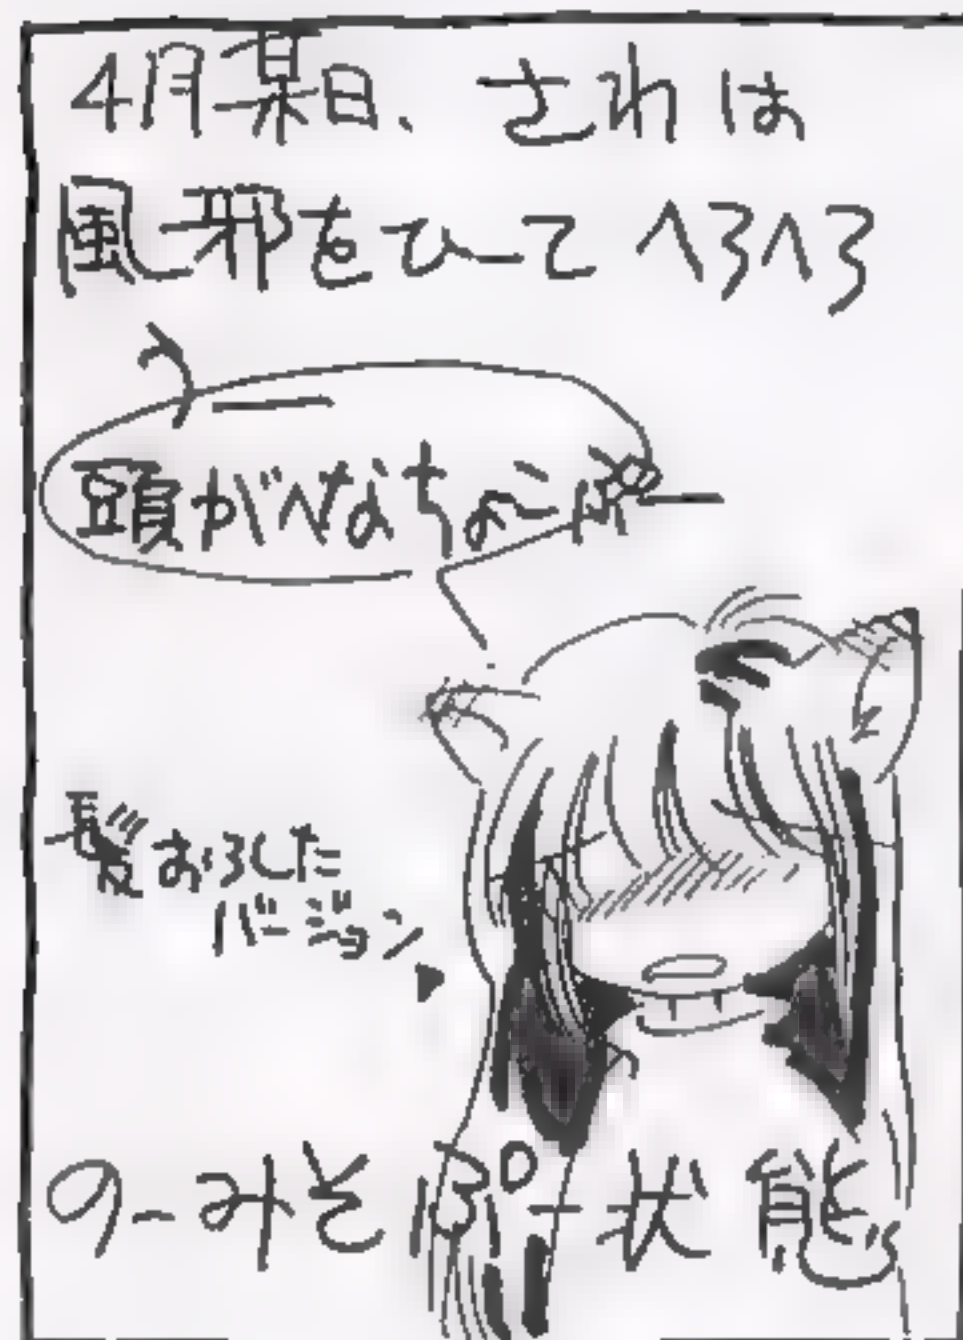 4月某日、さわは
風邪をひーてへろへろ
うー
頭がへなちょこぷー
髪おろした
バージョン
のーみそぱー状態